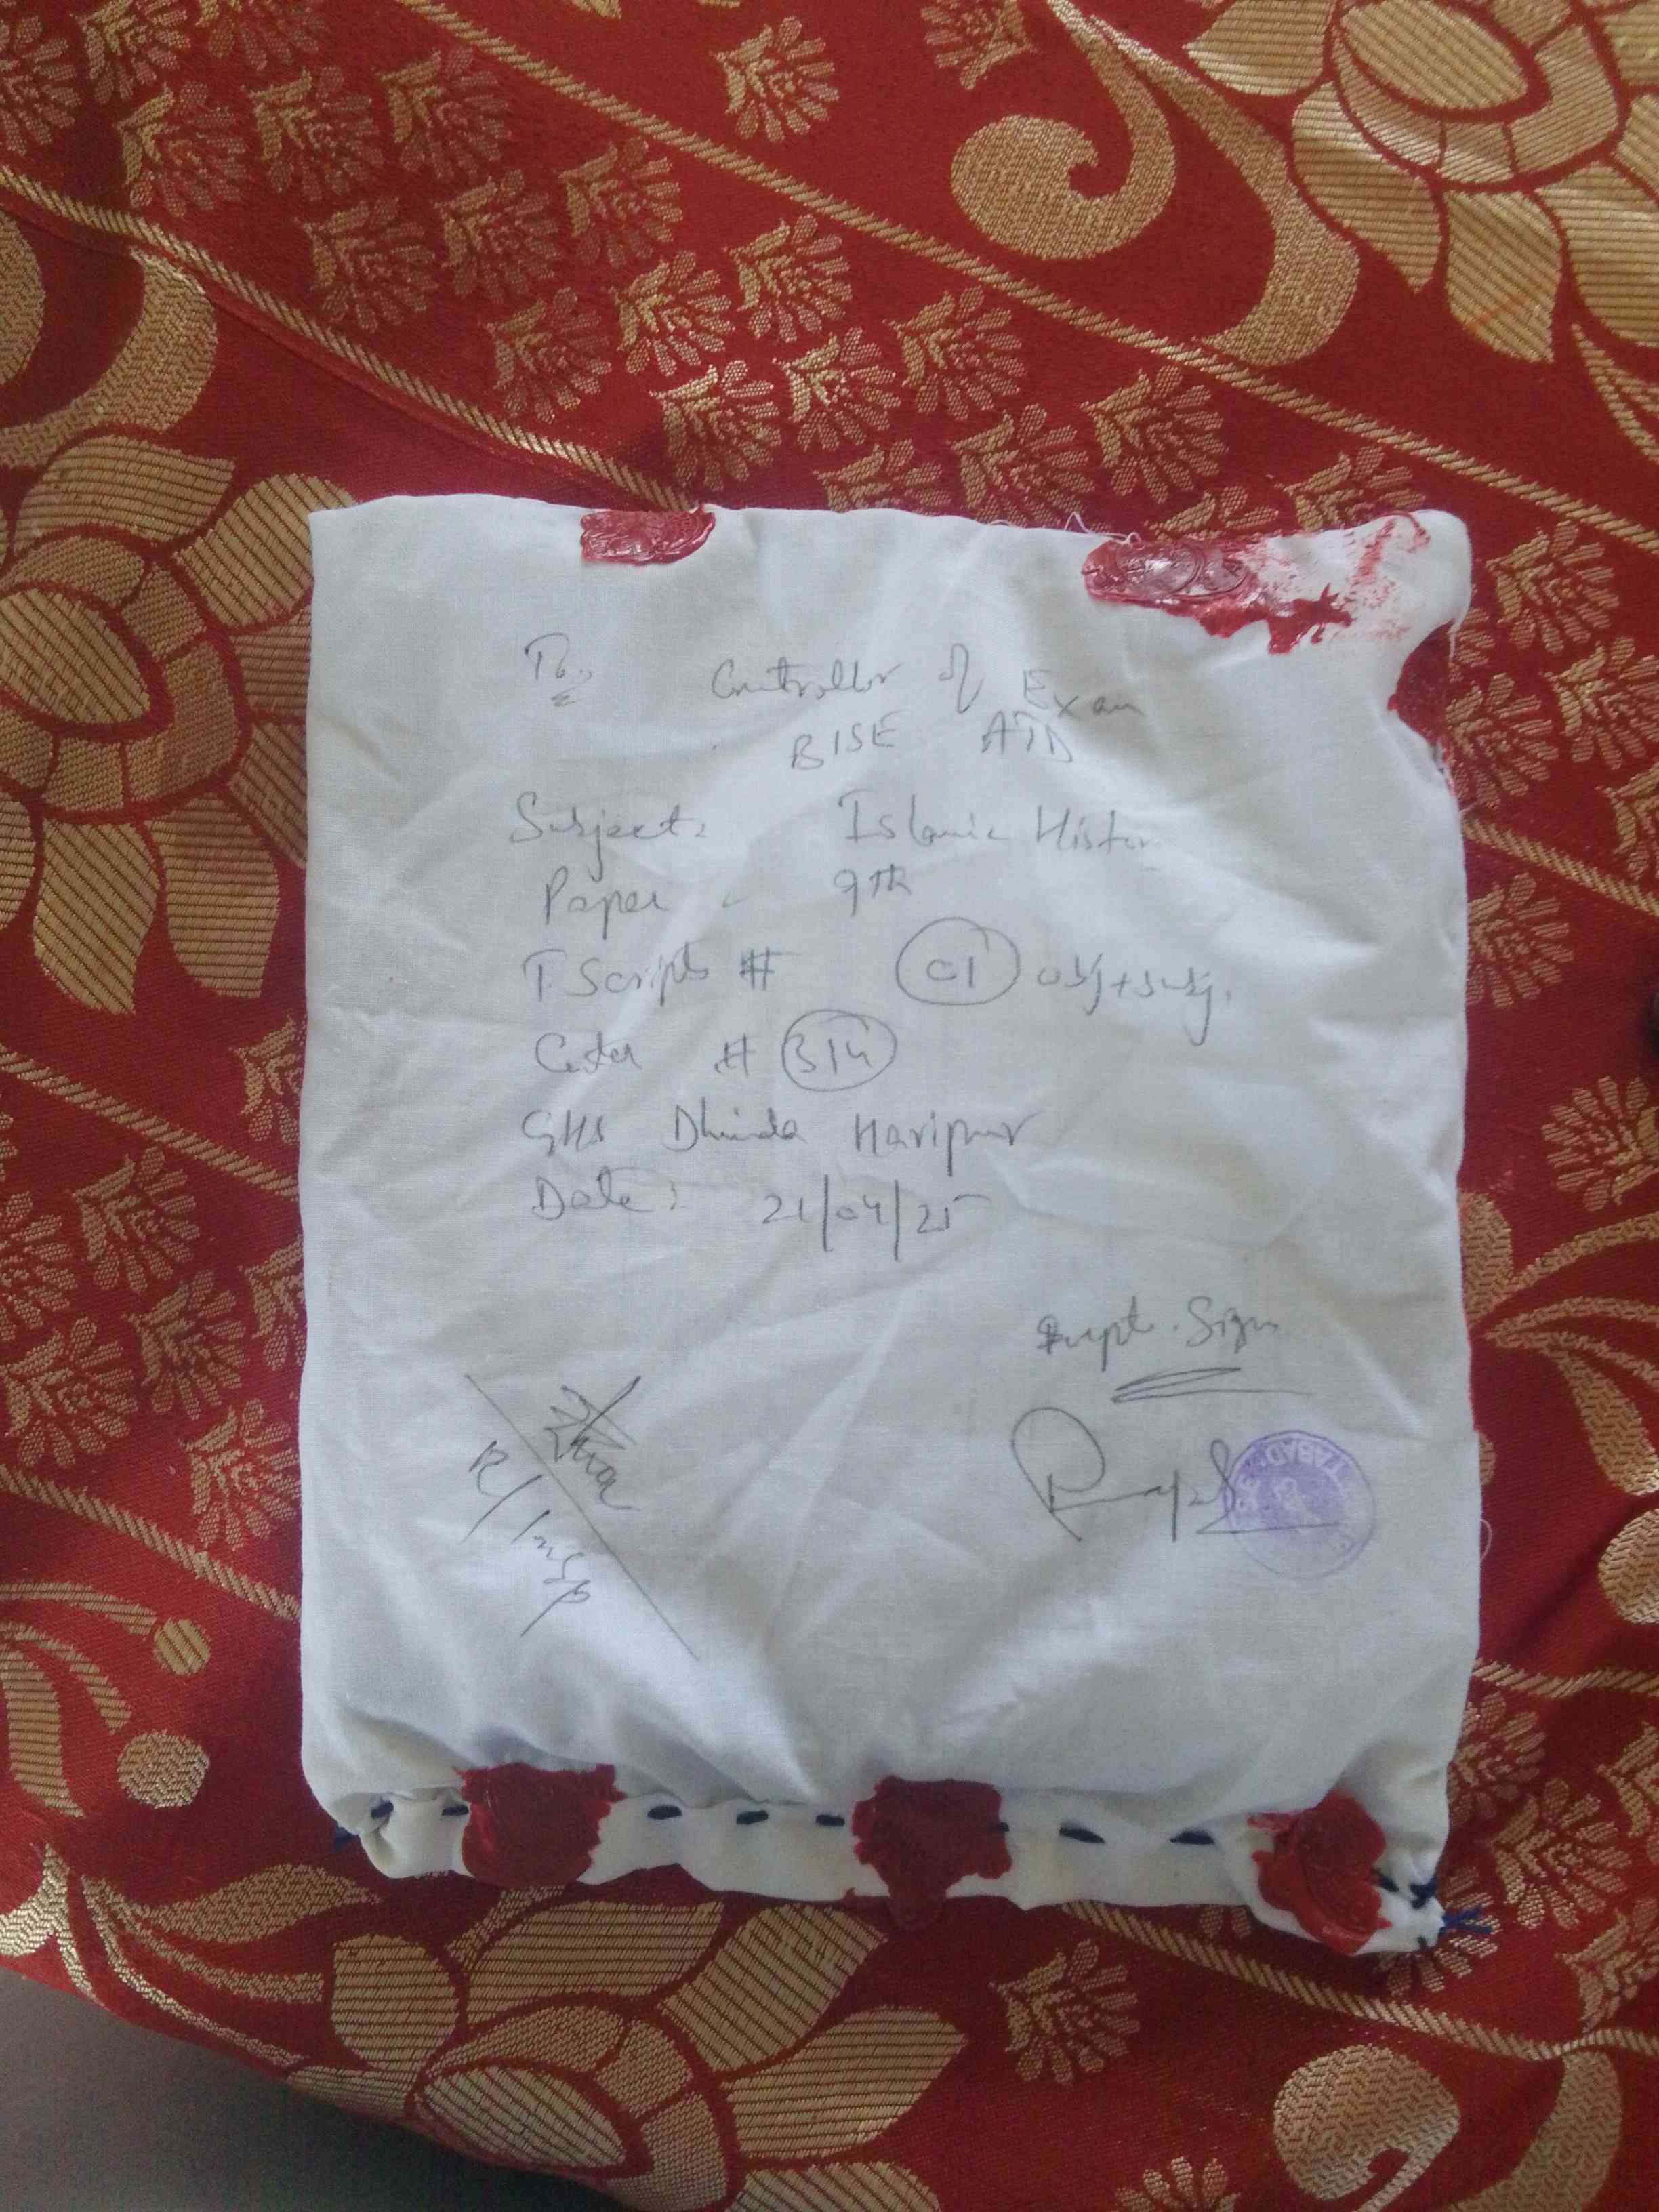 To,
Controller of Exam
BISE ATD
Subject: Islamic History
Paper - 9th
T. Scripts # 01 obj+subj.
Center # 314
GHS Dhinda Haripur
Date: 21/04/25
Supt. Sign
R/Insp
TABAD